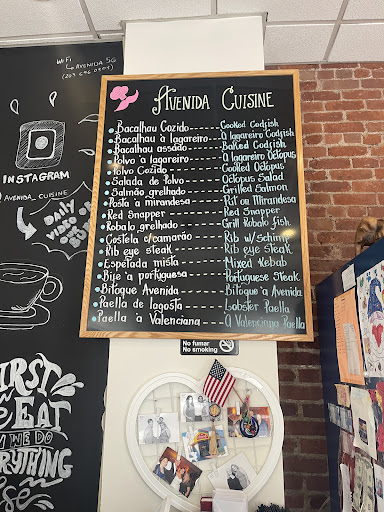 WiFi
AVENIDA 5G
AVENIDA CUISINE
Bacalhau Cozido------Cooked Codfish
Bacalhau à lagareiro---A lagareiro Codfish
Bacalhau assado------Baked Codfish
Polvo à lagareiro------A lagareiro Octopus
Polvo Cozido------Cooked Octopus
Salada de Polvo------Octopus Salad
Salmão grelhado------Grilled Salmon
Posta à mirandesa------Pst ou Mirandesa
Red Snapper------Red Snapper
Robalo grelhado------Grill Robalo fish
Costela c/camarão------Rib w/schimp
Rib eye steak------Rib eye steak
Espetada mista------Mixed Kebab
Bife à portuguesa------Portuguese Steak
Bitoque Avenida------Bitoque à Avenida
Paella de lagosta------Lobster Paella
Paella à Valenciana------A Valenciana Paella
INSTAGRAM
AVENIDA_CUISINE
DAILY
No fumar
No smoking
FIRST
EAT
WE DO
EVERYTHING
else